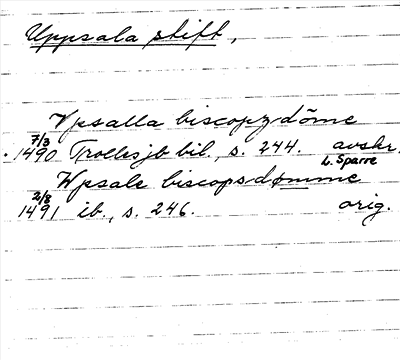 Uppsala stift,
Vpsalla biscopzdōme
7/3
1490 Trollesjb bil., s. 244. avskr.
L. Sparre
Wpsale biscopsdømme
2/8
1491 ib., s. 246. orig.